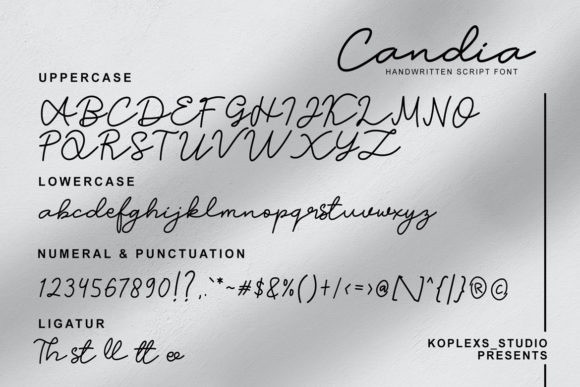 Candia
HANDWRITTEN SCRIPT FONT
UPPERCASE
ABCDEFGHIJKLMNO
PQRSTUVWXYZ
LOWERCASE
abcdefghijklmnopqrstuvwxyz
NUMERAL & PUNCTUATION
1234567890!?,.`*~#$&%()+/<=>@[\]^{|}®©
LIGATUR
Th st ll tt ee
KOPLEXS_STUDIO
PRESENTS